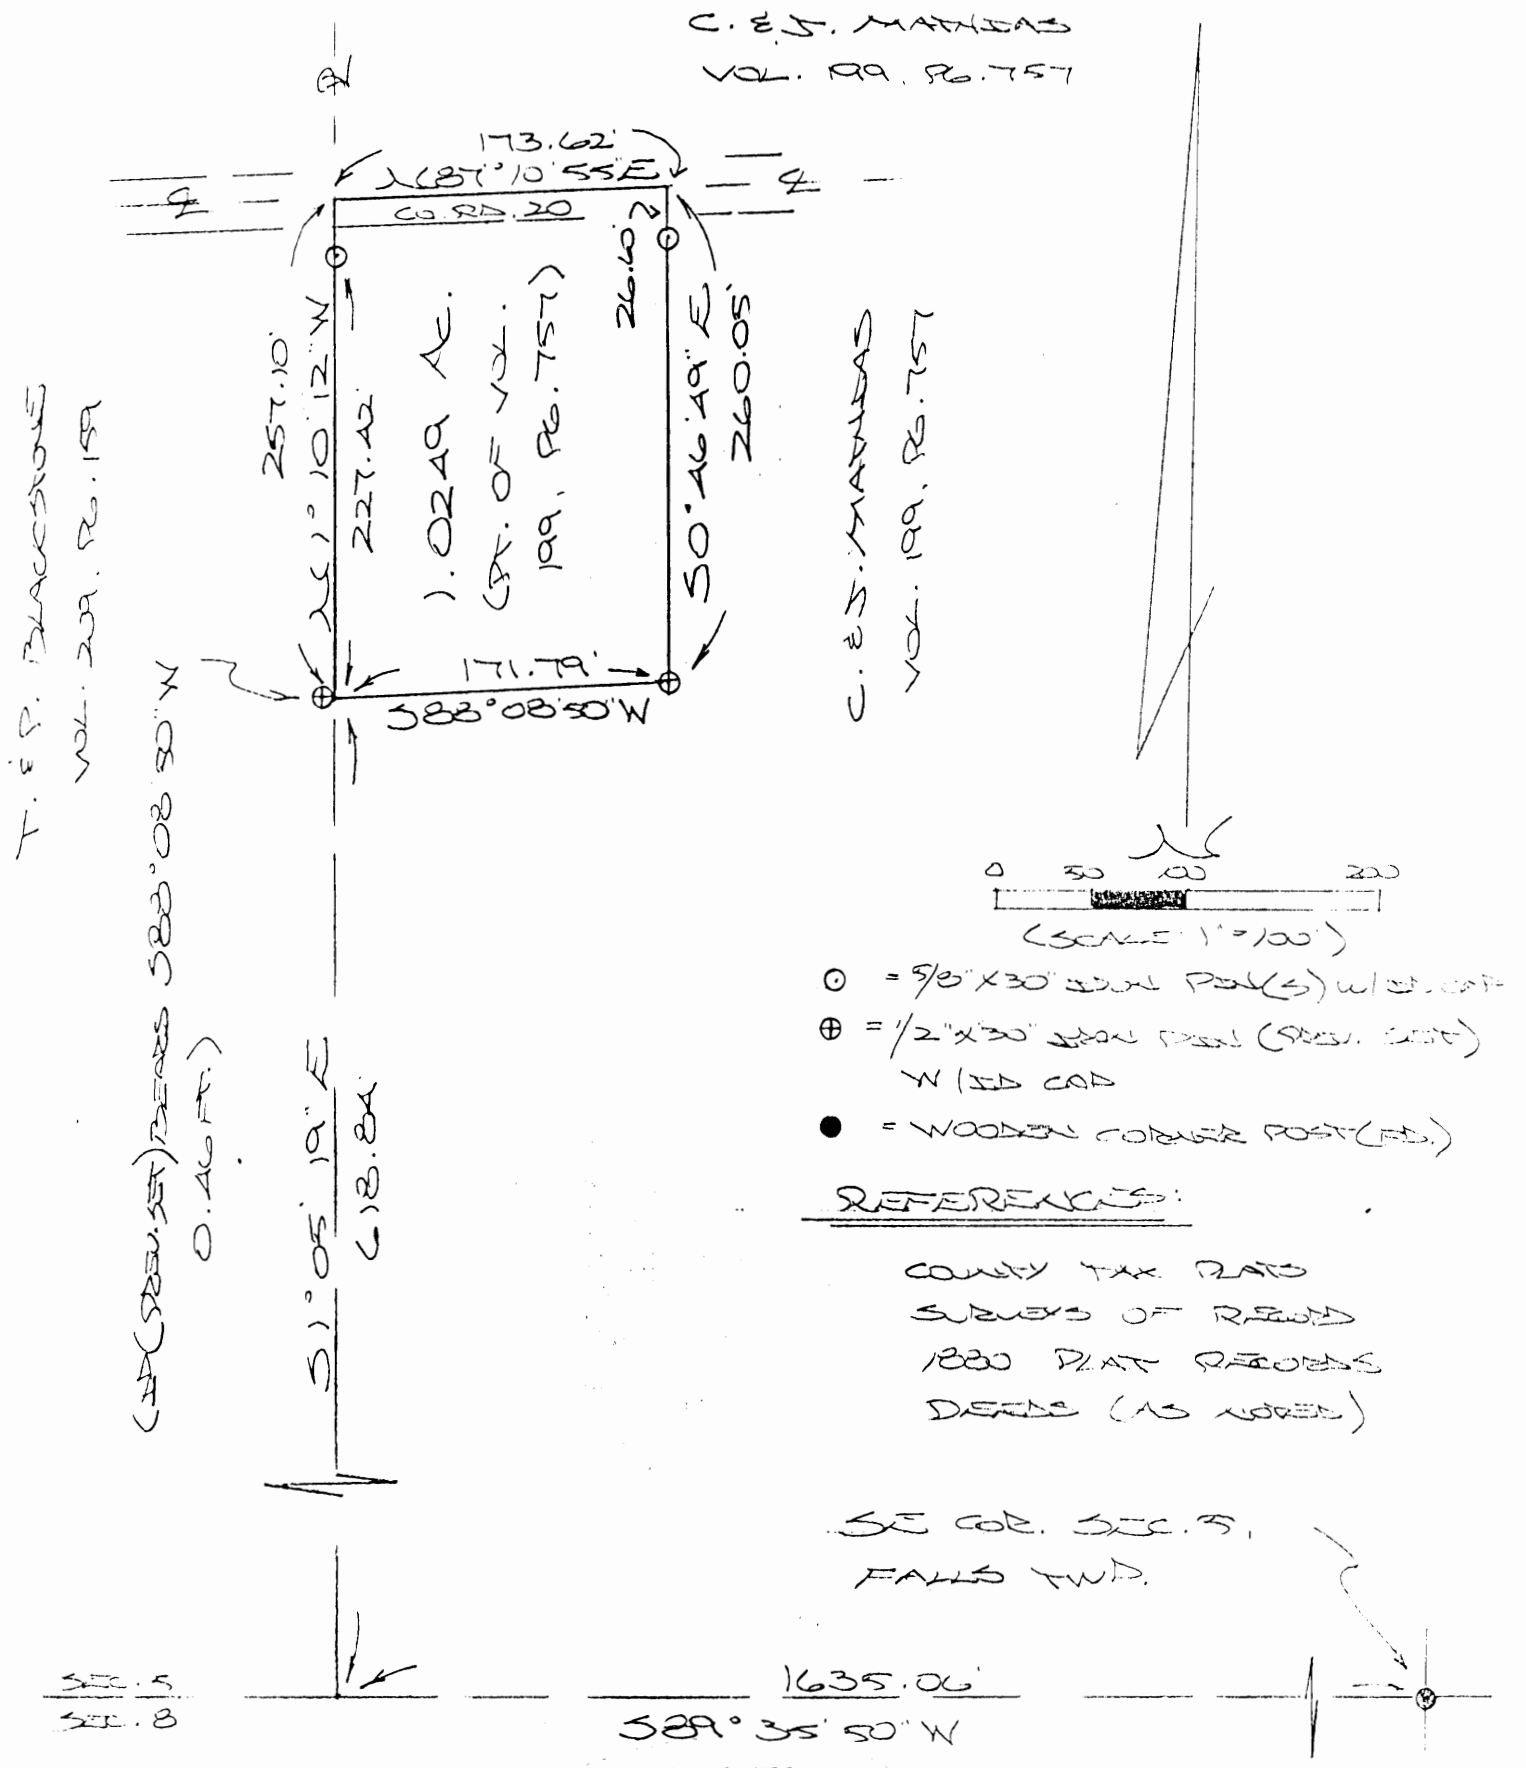 C. & J. MATHIAS
VOL. 199, PG. 757
173.62'
N 87° 10' 55" E
CO. RD. 20
26.60'
257.10'
N 1° 10' 12" W
227.42'
1.0249 AC.
(PT. OF VOL.
199, PG. 757)
S 0° 46' 49" E
260.05'
C. & J. MATHIAS
VOL. 199, PG. 757
T. & P. BLACKSTONE
VOL. 209, PG. 159
171.79'
S 88° 08' 50" W
(IP (PREV. SET) BEARS S 88° 08' 50" W
0.46 FT.)
S 1° 05' 19" E
618.84'
N
0 50 100 200
(SCALE 1" = 100')
= 5/8" X 30" IRON PIN(S) W/ ID. CAP
= 1/2" X 30" IRON PIN (PREV. SET)
W/ ID CAP
= WOODEN CORNER POST (FD.)
REFERENCES:
COUNTY TAX PLATS
SURVEYS OF RECORD
1880 PLAT RECORDS
DEEDS (AS NOTED)
SE COR. SEC. 5,
FALLS TWP.
SEC. 5
SEC. 8
1635.06'
S 89° 35' 50" W